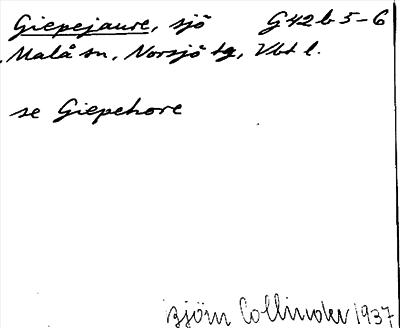 Giepejaure, sjö G42b5-6
Malå sn, Norsjö tg, Vbt l.
se Giepehore
Björn Collinder 1937